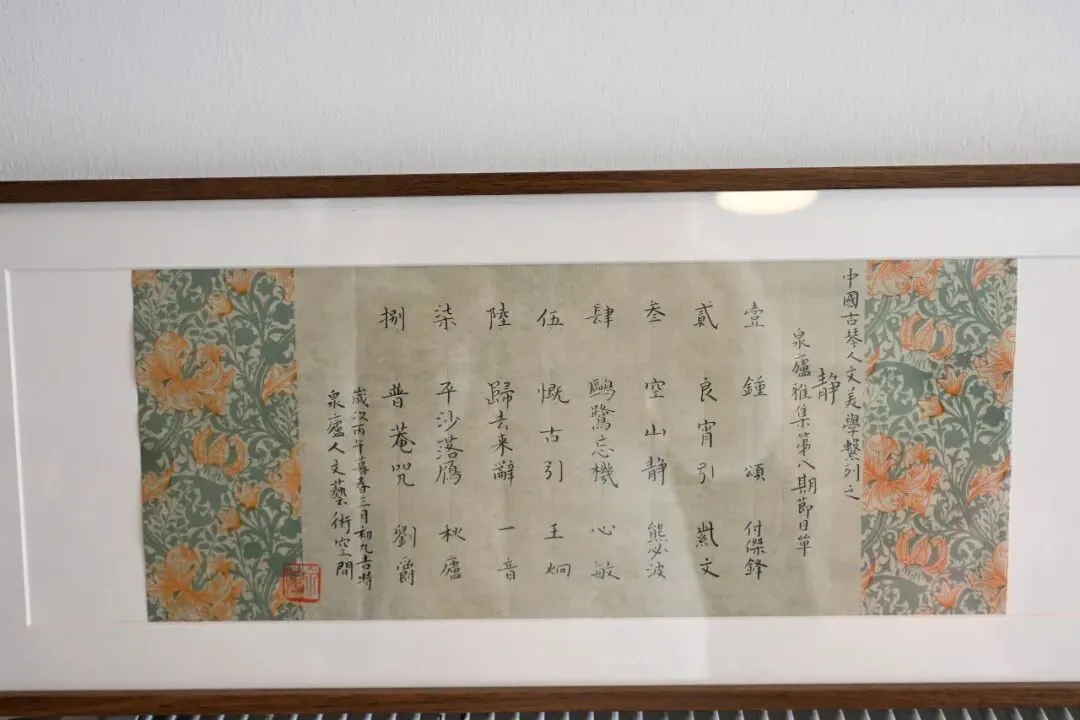 中國古琴人文美學繫列之
静
泉廬雅集第八期節目單
壹 鍾頌 付傑鋒
貳 良宵引 紫文
叁 空山静 熊必波
肆 鷗鷺忘機 心敏
伍 慨古引 王炯
陸 歸去来辭 一音
柒 平沙落鴈 秋廬
捌 普菴咒 劉爵
歲次丙午暮春三月初九吉時
泉廬人文藝術空間